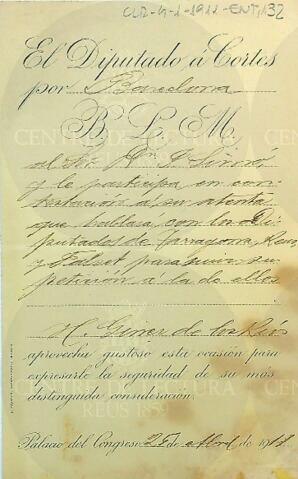 CLR-4-1-1911-ENT,132
El Diputado á Cortes
por Barcelona
B. L. M.
al Sr. Dn
y le participa en con-
testacion a su atenta
que hablará con los Di-
putados de Tarragona, Reus
y Falset para unir su
peticion á la de ellos
H. Giner de los Rios
aprovecha gustoso esta ocasión para
expresarle la seguridad de su más
distinguida consideración.
Palacio del Congreso 25 de Abril de 1911
CENTRE DE LECTURA
REUS 1859